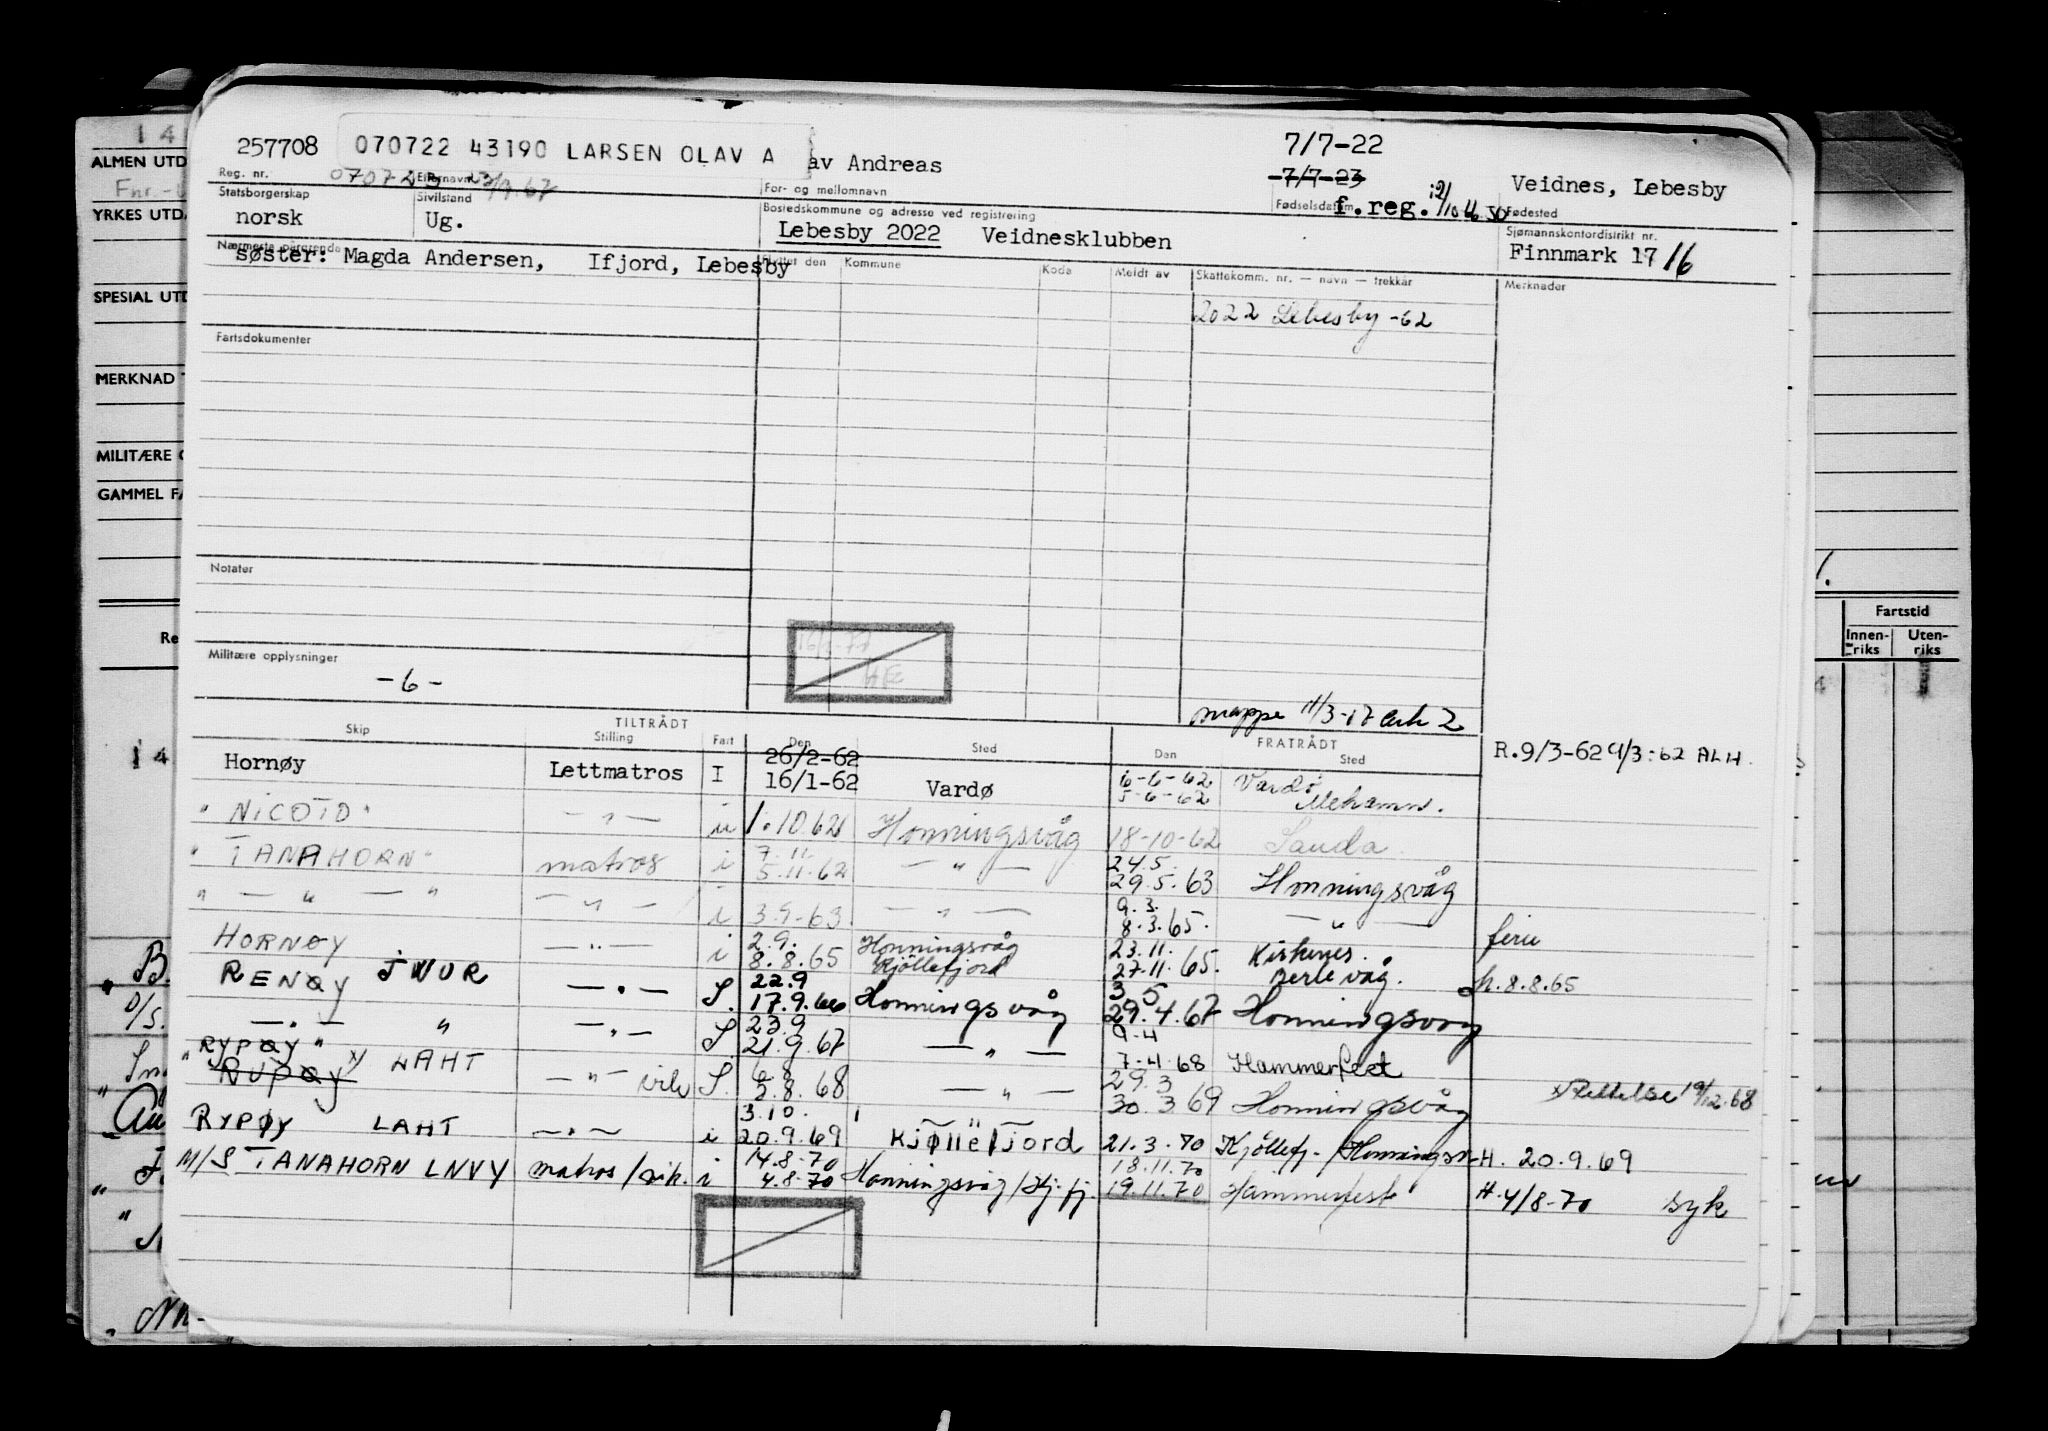 257708 070722 43190 LARSEN OLAV A av Andreas 7/7-22
Reg. nr. 070723 Etternavn For- og mellomnavn 7/7-23 Fødselsdatum f.reg. Veidnes, Lebesby Fødested
Statsborgerskap Sivilstand Bostedskommune og adresse ved registrering Sjømannskontordistrikt nr.
norsk Ug. Lebesby 2022 Veidnesklubben Finnmark 17 16
Nærmeste pårørende Flyttet den Kommune Kode Meldt av Skattekomm. nr. — navn — trekkår Merknader
søster: Magda Andersen, Ifjord, Lebesby
2022 Lebesby -62
Fartsdokumenter
Notater
Militære opplysninger
- 6 -
mappe 11/3-17 ark 2
TILTRÅDT FRATRÅDT
Skip Stilling Fart Den Sted Den Sted
R.9/3-62 9/3-62 ALH.
Hornøy Lettmatros I 26/2-62 16/1-62 Vardø 6-6-62 5-6-62 Vardø Mehamn.
"NICOTO" — " — u 1.10.62 Honningsvåg 18-10-62 Sauda
"TANAHORN" matros i 7.11. 5.11.62 — " — 24.5. 29.5.63 Honningsvåg
" — " — " — " — i 3.9-63 — " — 9.3. 8.3.65. — " — ferie
HORNØY — " — i 2.9. 8.8.65 Honningsvåg Kjøllefjord 23.11. 27.11.65. Kirkenes. Berlevåg. h.8.8.65
RENØY JWUR — " — S. 22.9 17.9.66 Honningsvåg 3.5 29.4.67 Honningsvåg
— " — " — " — S 23.9 21.9.67 — " — 9-4 7-4-68 Hammerfest
"RYPØY" RUPØY x) LAHT — " — S. 6.8 2.8.68 — " — 29.3 30.3.69 Honningsvåg x Rettelse 19/12.68
RYPØY LAHT — " — i 3.10. 20.9.69 Kjøllefjord 21.3.70 Kjøllefj./Honningsv. H. 20.9.69
M/S TANAHORN LNVY matros/vik. i 14.8.70 4.8.70 Honningsvåg/Kj.fj. 18.11.70 19.11.70 Hammerfest H.4/8-70 syk
ALMEN UTD
Fnr.
YRKES UTDA
SPESIAL UTD
MERKNAD
MILITÆRE
GAMMEL FA
Re
Fartstid
Innen-riks Uten-riks